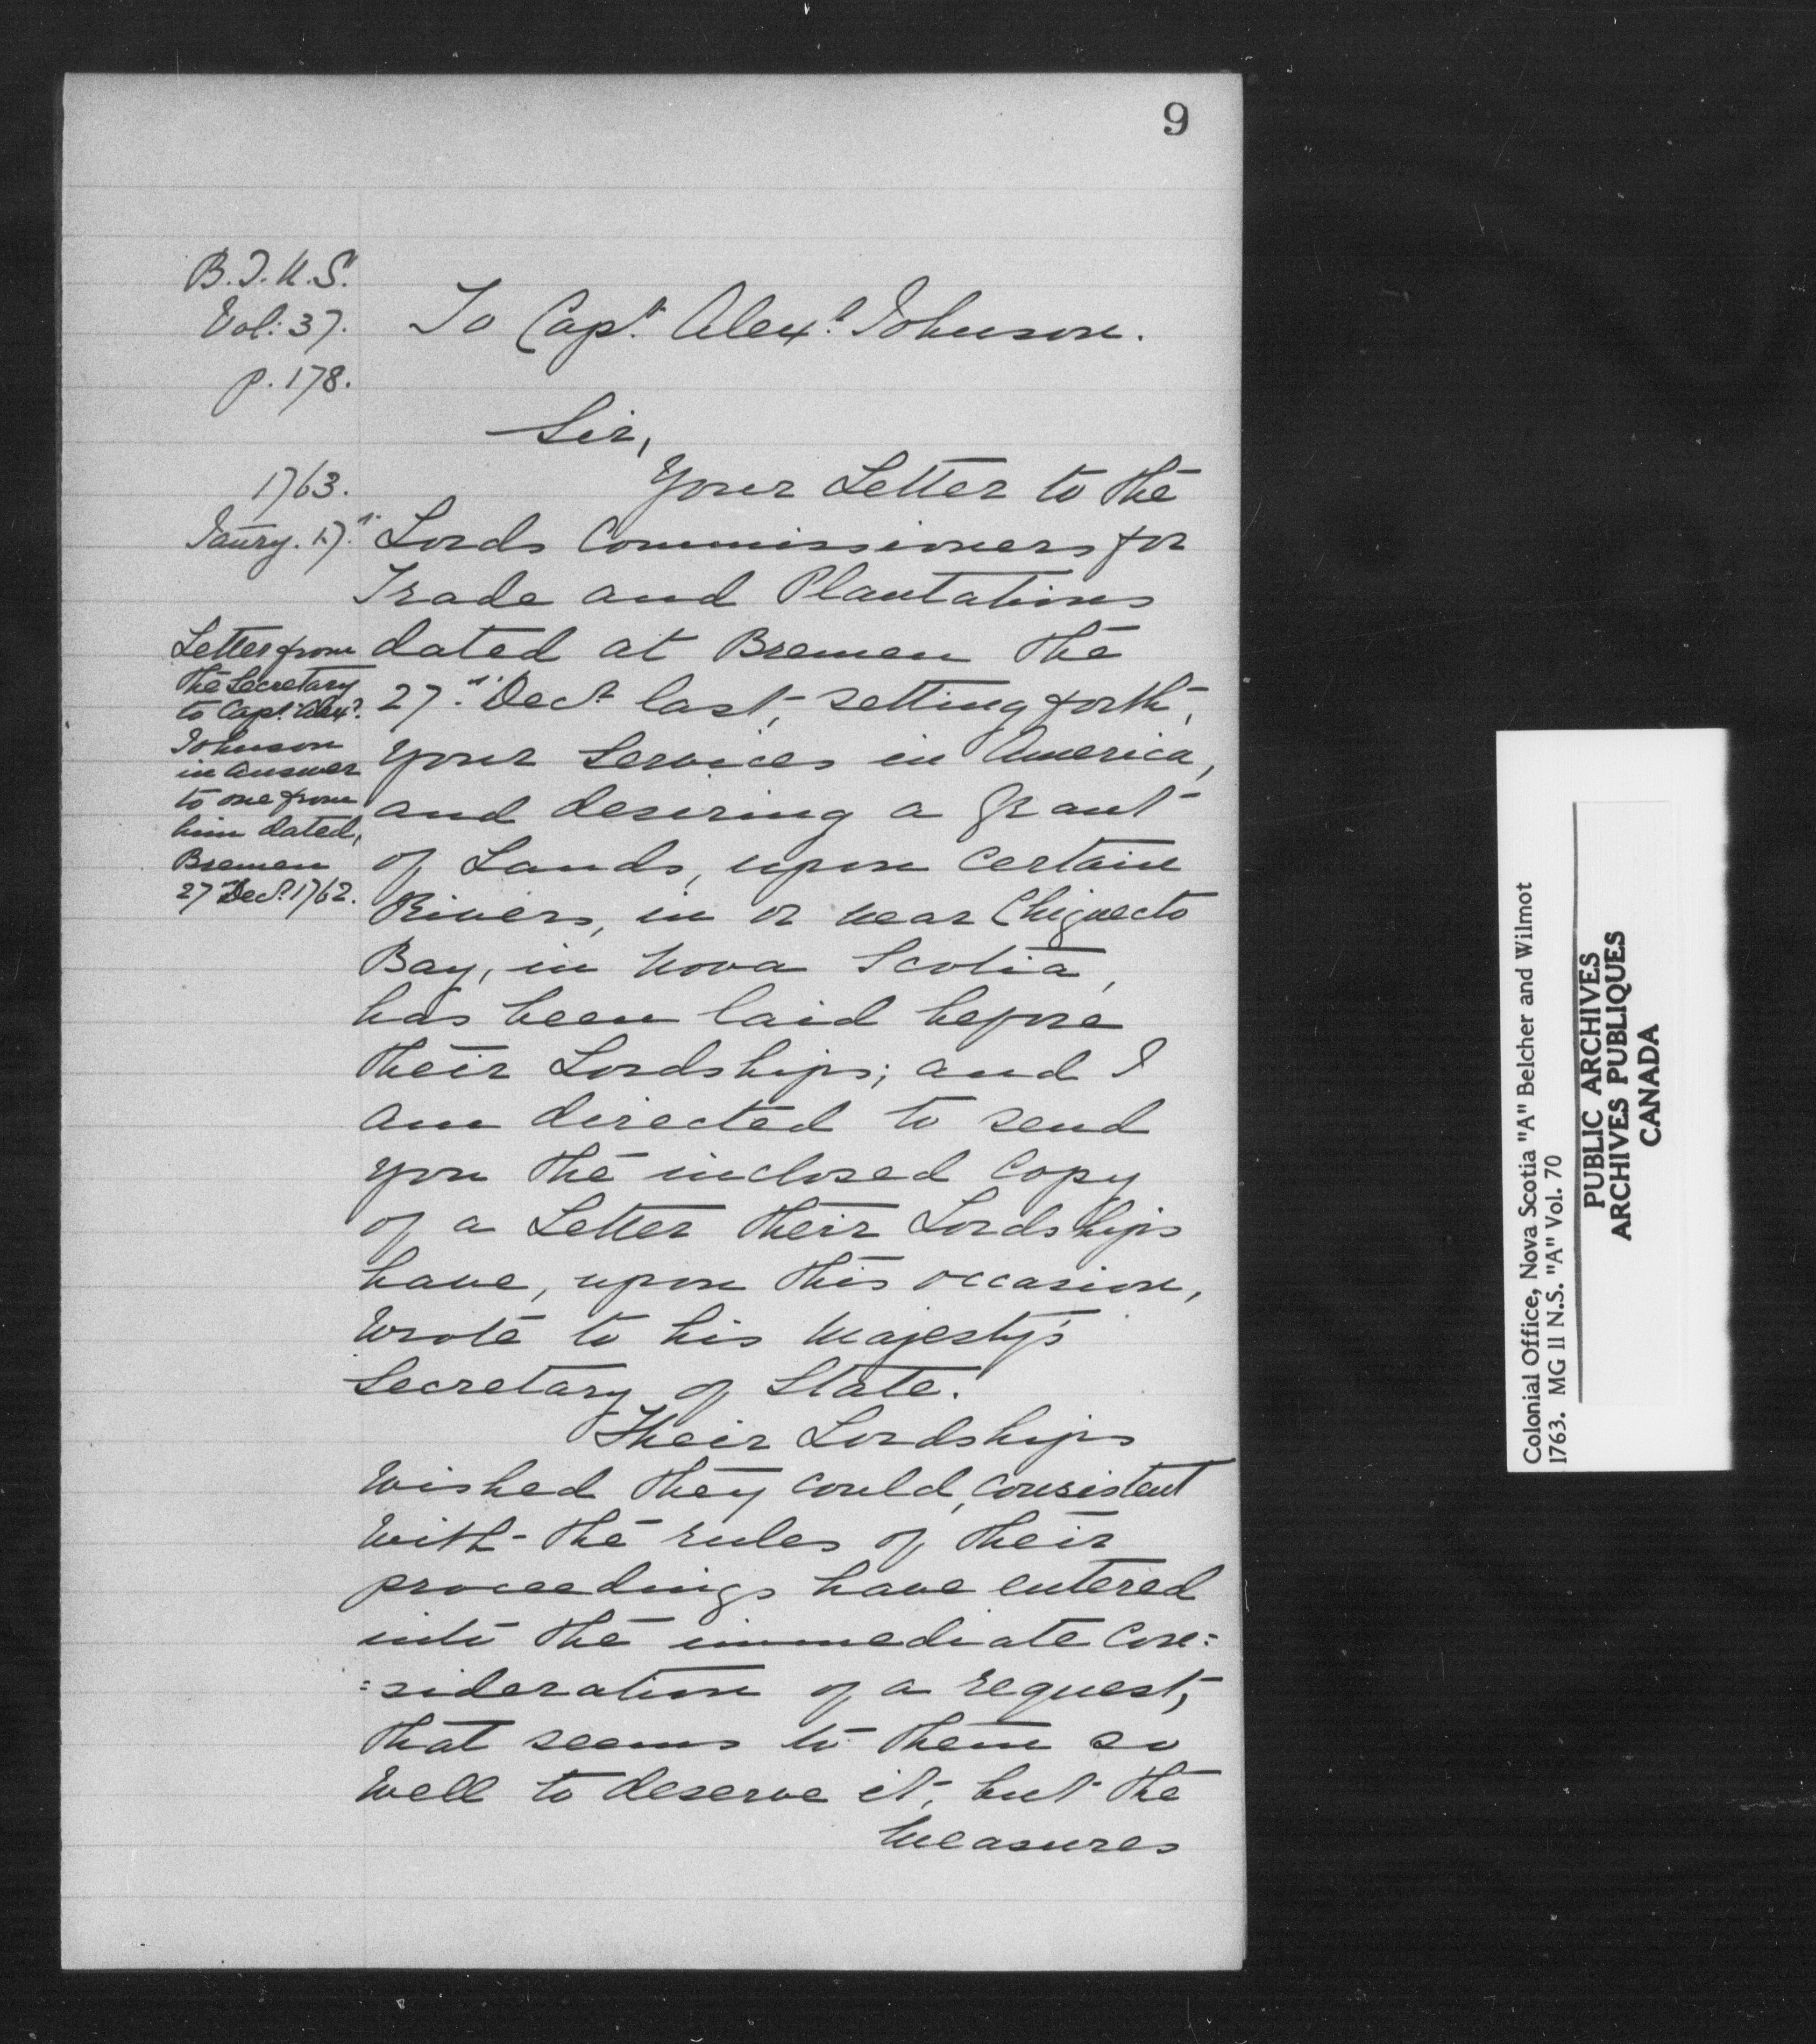 9
B.T.N.S.
Vol: 37.
p. 178.
To Capt. Alexr. Johnson.
Sir,
1763.
Janry. 17th.
Your Letter to the
Lords Commissioners for
Trade and Plantations
dated at Bremen the
27th. Decr. last, setting forth,
your Services in America,
and desiring a Grant
of Lands, upon certain
Rivers, in or near Chignecto
Bay, in Nova Scotia,
has been laid before
their Lordships; and I
am directed to send
you the inclosed Copy
of a Letter their Lordships
have, upon this occasion,
wrote to his Majesty's
Secretary of State.
Their Lordships
wished they could, consistent
with the rules of their
proceedings have entered
into the immediate Con=
=sideration of a request,
that seems to them so
well to deserve it, but the
Measures
Letter from
the Secretary
to Capt. Alexr.
Johnson
in answer
to one from
him dated,
Bremen
27 Decr. 1762.
Colonial Office, Nova Scotia "A" Belcher and Wilmot
1763. MG 11 N.S. "A" Vol. 70
PUBLIC ARCHIVES
ARCHIVES PUBLIQUES
CANADA